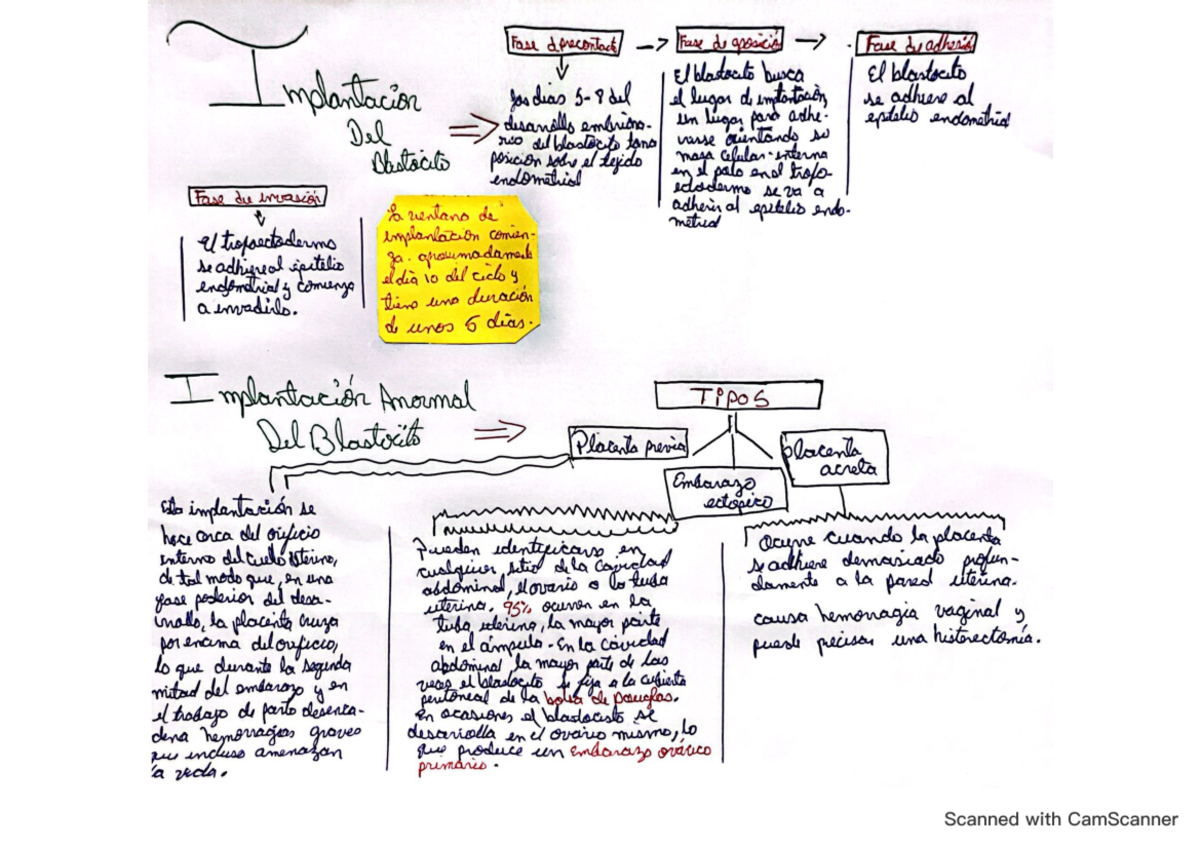 Implantación
Del
Blastocito
Fase d precontacto
los dias 5-8 del
desarrollo embriona-
rio del blastocito toma
posición sobre el tejido
endometrial
Fase de aposición
El blastocito busca
el lugar de implantación
un lugar para adhe-
rirse orientando su
masa celular interna
en el polo en al trofo-
ectodermo se va a
adherir al epitelio endo-
metrial
Fase de adhesión
El blastocito
se adhiere al
epitelio endometrial
Fase de invasión
El trofoectodermo
se adhiere al epitelio
endometrial y comienza
a invadirlo.
La ventana de
implantación comien-
za aproximadamente
el día 10 del ciclo y
tiene una duración
de unos 5 días.
Implantación Anormal
Del Blastocito
TIPOS
Placenta previa
Embarazo
ectopico
placenta
acreta
Esta implantación se
hace cerca del orificio
interno del cuello uterino,
de tal modo que, en una
fase posterior del desa-
rrollo, la placenta cruza
por encima del orificio,
lo que durante la segunda
mitad del embarazo y en
el trabajo de parto desenca-
dena hemorragias graves
que incluso amenazan
la vida.
Pueden identificarse en
cualquier sitio de la cavidad
abdominal, el ovario o la tuba
uterina. 95% ocurren en la
tuba uterina, la mayor parte
en el ámpula. En la cavidad
abdominal la mayor parte de las
veces el blastocito se fija a la cubierta
peritoneal de la bolsa de Douglas.
en ocasiones el blastocisto se
desarrolla en el ovario mismo, lo
que produce un embarazo ovárico
primario.
Ocurre cuando la placenta
se adhiere demasiado profun-
damente a la pared uterina.
causa hemorragia vaginal y
puede precisar una histerectomía.
Scanned with CamScanner